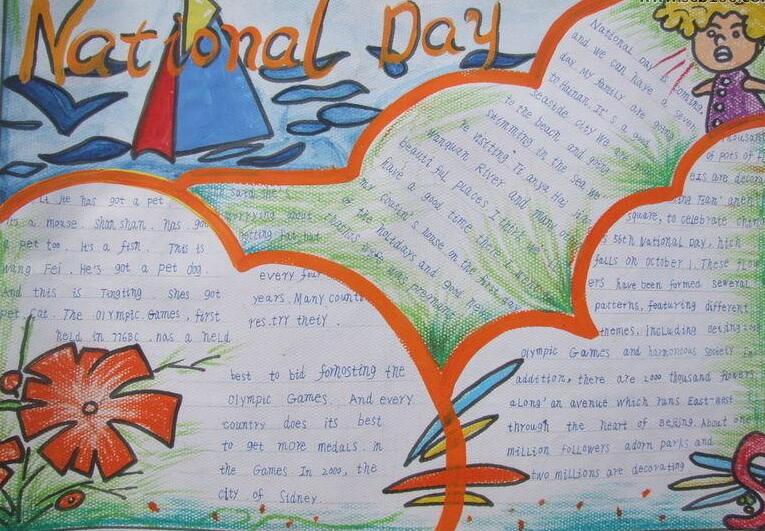 National Day
He has got a pet
it's a mouse. Shan shan. has got
a pet too. It's a fish. This is
Wang Fei. He's got a pet dog.
And this is Tingting. Shes got
pet cat. The Olympic. Games, first
held in 776BC. has a held
said she's
worrying about
getting fat, but
every four
years. Many count
res.try theiy.
best to bid fornosting the
Olympic Games. And every
country does its best
to get more medals. in
the Games In 2000, the
city of Sidney.
National Day is coming.
and we can have a seven
day My family are going
to Hainan. It's a good
seaside city we are
to the beach and going
swimming in the sea. We
re visiting Tianya Hai
Wanquan River and many
beautiful places I think we
have a good time there
my cousin's house on the first day
of the holidays and good news
wife was pregnant
thousand
pots of
ers are decora
square, to celebrate china
s 56th National day, hich
falls on october 1. These flow
ers have been formed several
patterns, featuring different
themes, including beijing
Olympic Games and harmonious society in
addition, there are 2000 thousand flowers
along' an avenue which runs East-west
through the heart of Beijing. About one
million followers adorn parks and
two millions are decorating